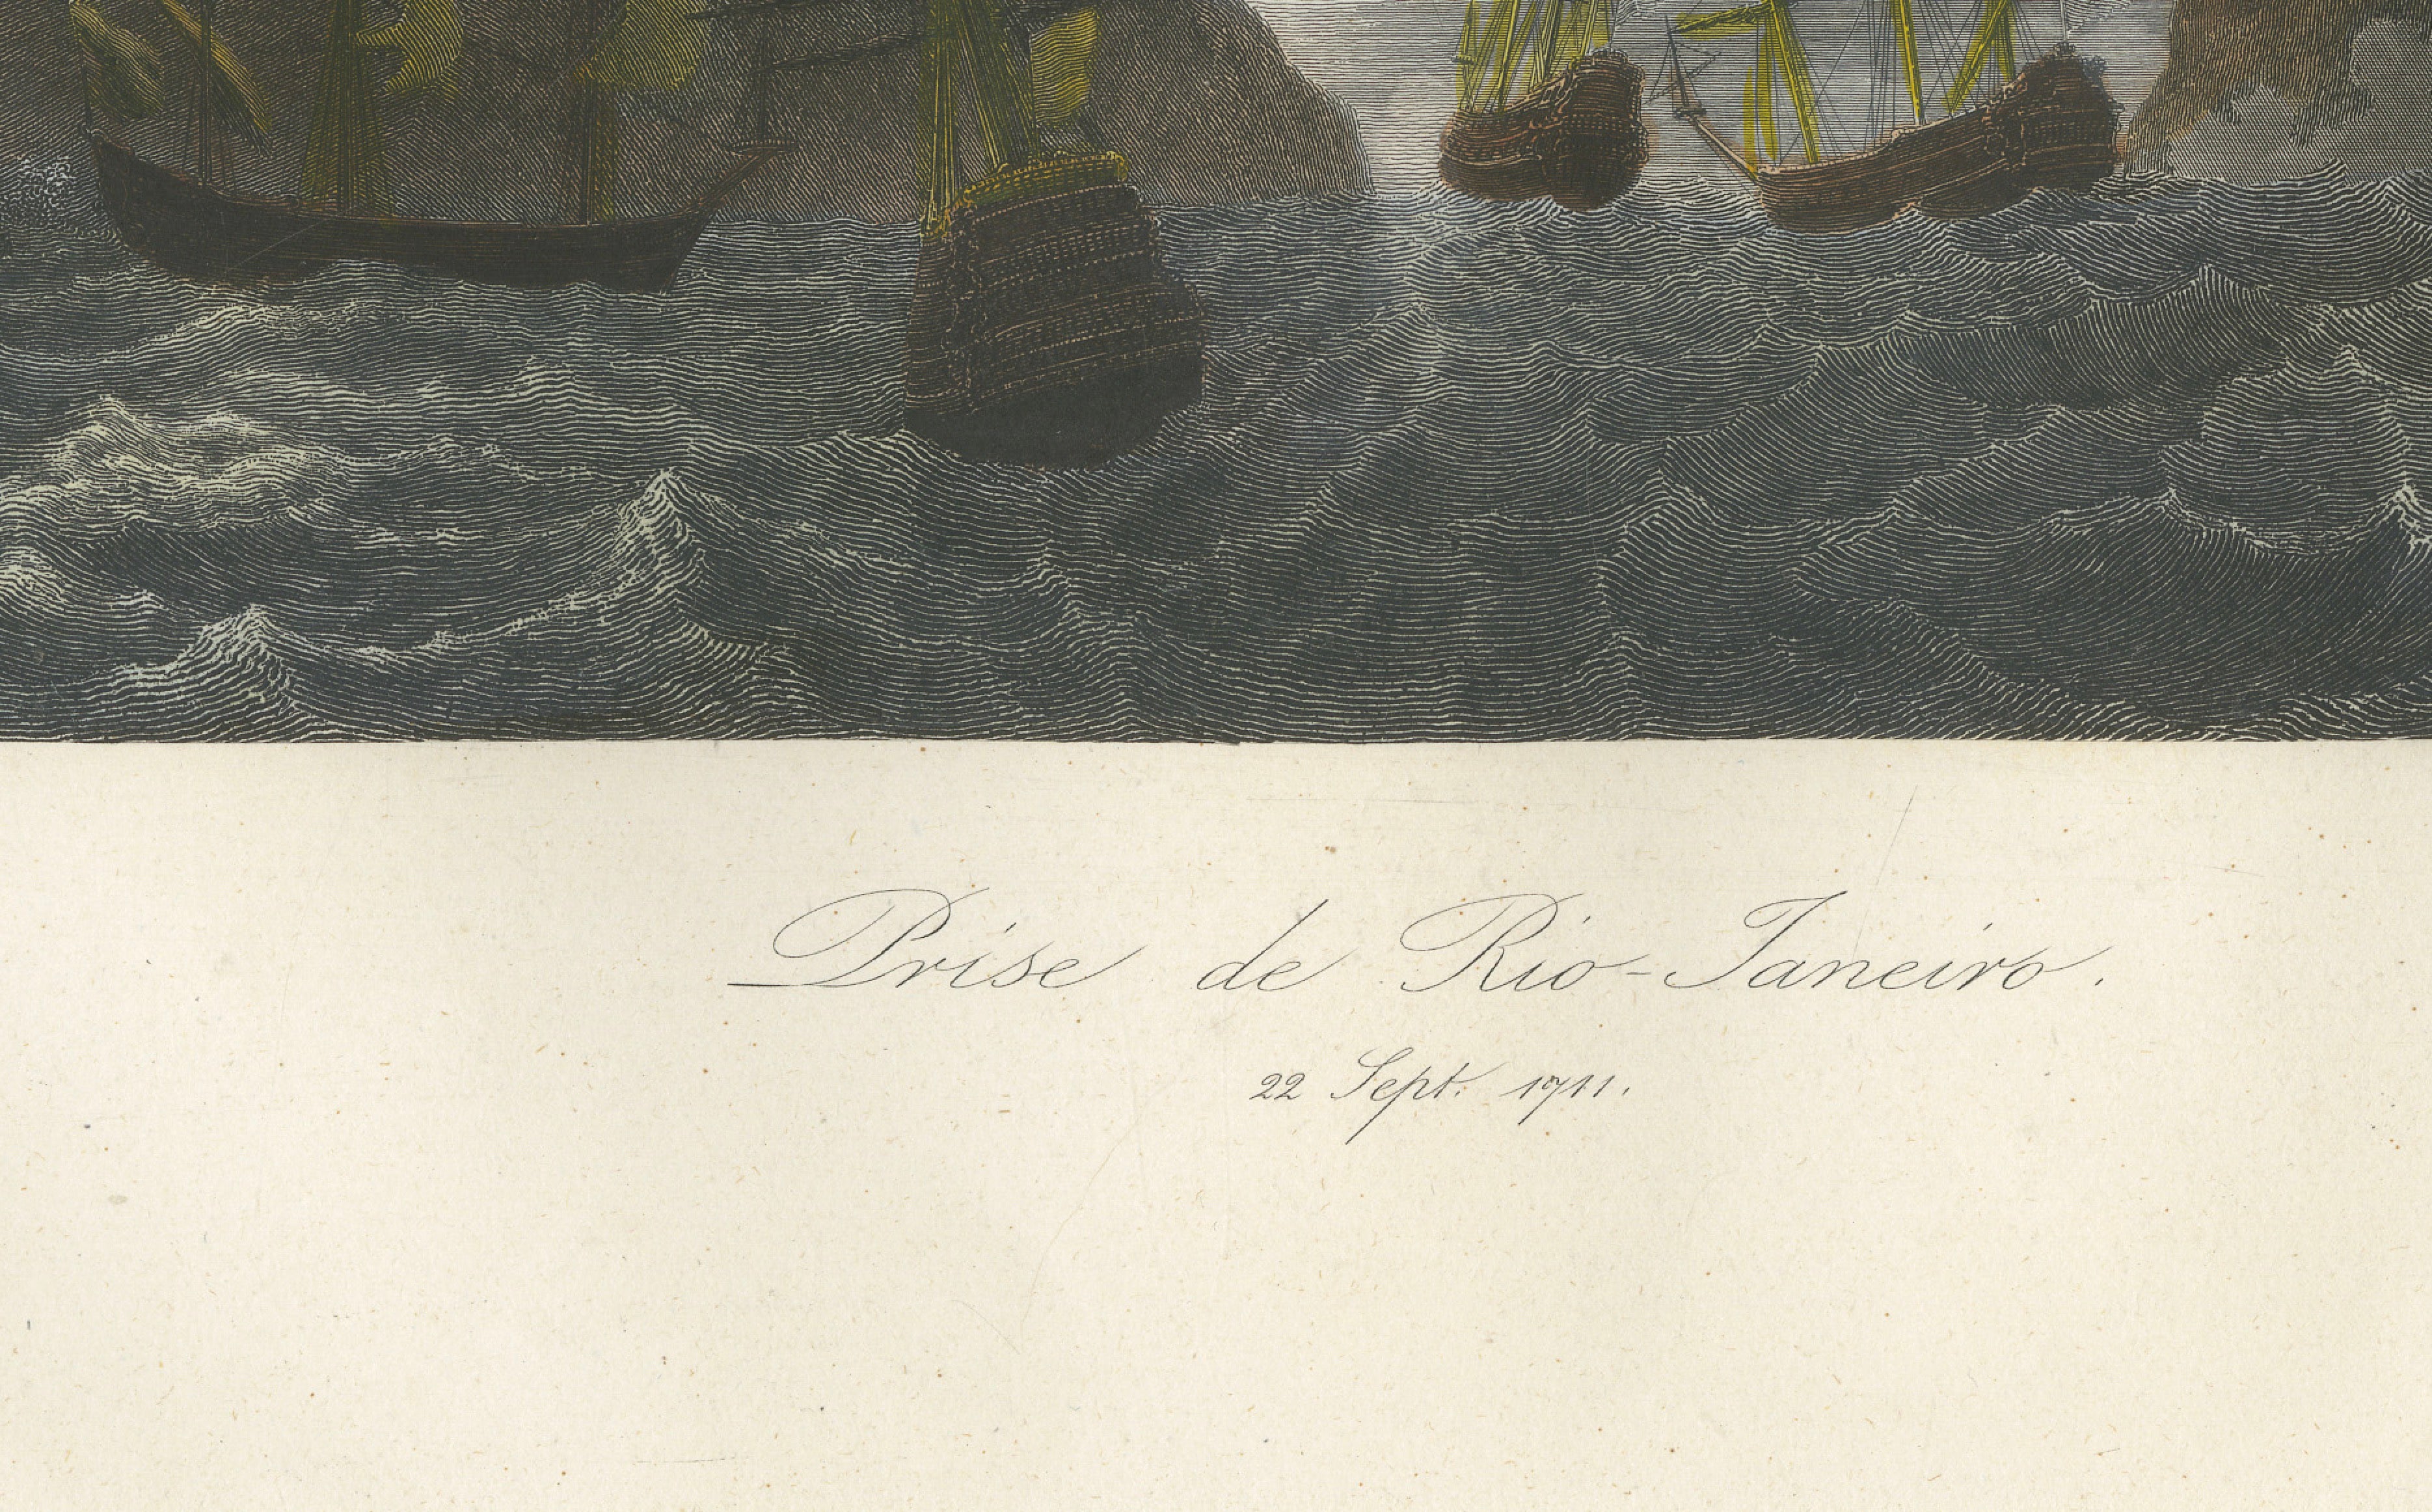 Prise de Rio-Janeiro.
22 Sept. 1711.